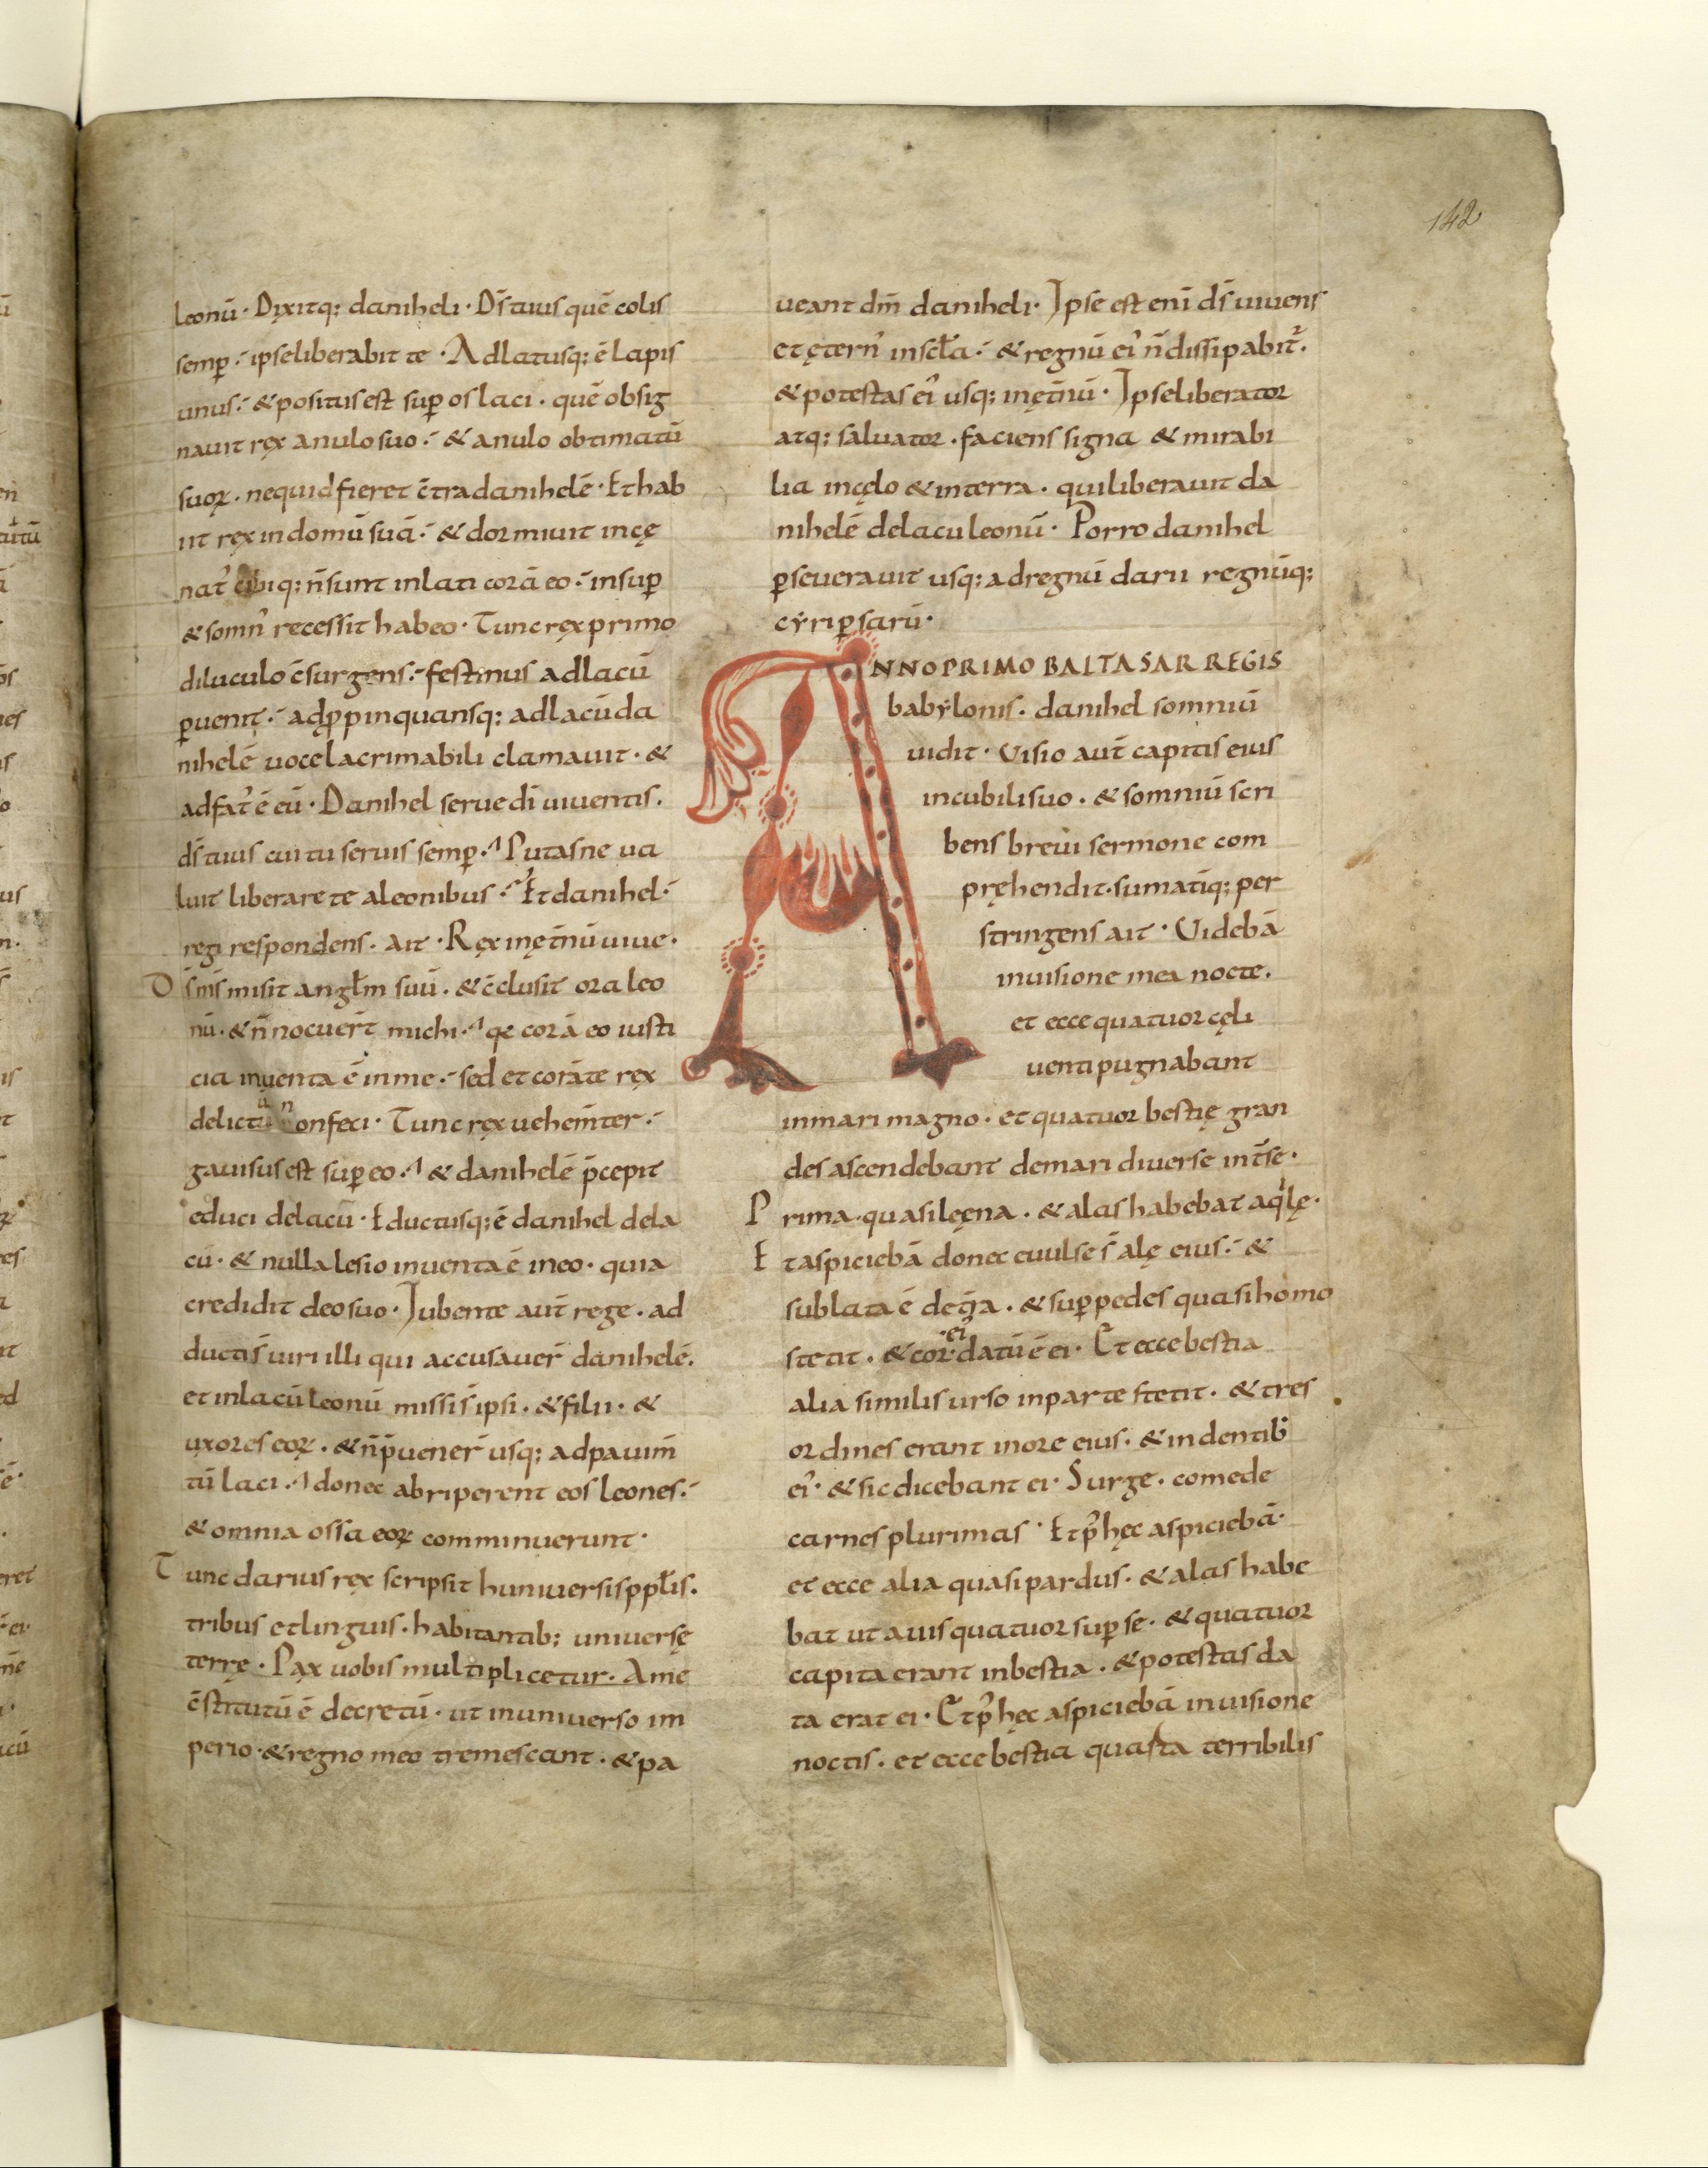 142
leonū · Dixitq; daniheli · Ds̄ tuus quē colis
semꝑ ·̄ ipse liberabit te · Adlatusq; ē lapis
unus ·̄ & positus est suꝑ os laci · quē obsig
nauit rex anulo suo ·̄ & anulo obtimatū
suoꝝ · ne quid fieret c̄tra danihelē · Et hab
iit rex in domū suā ·̄ & dormiuit incę
nat᾿ cibiq; n̄ sunt inlati corā eo ·̄ insuꝑ
& somn᾿ recessit hab eo · Tunc rex primo
diluculo c̄surgens ·̄ festinus ad lacū
ꝑuenit ·̄ adꝓpinquansq; ad lacū da
nihelē uoce lacrimabili clamauit · &
adfat᾿ ē eū · Danihel serue dī uiuentis ·
ds̄ tuus cui tu seruis semꝑ · Putasne ua
luit liberare te a leonibus · Et danihel ·̄
regi respondens · ait · Rex inęt̄nū uiue ·
D s̄ ms̄ misit angl̄m suū · & c̄clusit ora leo
nū · & n̄ nocuer̄t michi · qę corā eo iusti
cia inuenta ē in me ·̄ sed et corā te rex
delictū n onfeci · Tunc rex uehem̄ter ·̄
gauisus est suꝑ eo · & danihelē p̄cepit
educi de lacū · Eductusq; ē danihel de la
cū · & nulla lesio inuenta ē in eo · quia
credidit deo suo · Jubente aut̄ rege · ad
ducti s̄ uiri illi qui accusauer̄ danihelē ·
et in lacū leonū missi s̄ ipsi · & filii · &
uxores eoꝝ · & n̄ p̄uener̄ usq; ad pauim̄
tū laci · donec abriperent eos leones ·̄
& omnia ossa eoꝝ comminuerunt ·
T unc darius rex scripsit huniuersis ppl̄is ·
tribus et linguis · habitantib; uniuersę
terrę · Pax uobis multiplicetur · A me
c̄stitutū ē decretū · ut in uniuerso im
perio · & regno meo tremescant · & pa
ueant dm̄ daniheli · Ipse est enī ds̄ uiuens
et ętern᾿ in scl̄a ·̄ & regnū ei᾿ n̄ dissipabit᾿ ·
& potestas ei᾿ usq; in ęt̄nū · Ipse liberator
atq; saluator · faciens signa & mirabi
lia in cęlo & in terra · qui liberauit da
nihelē de lacu leonū · Porro danihel
ꝑseuerauit usq; ad regnū darii regnūq;
cẏri ꝑsarū ·
ANNO PRIMO BALTASAR REGIS
babẏlonis · danihel somniū
uidit · Uisio aut̄ capitis eius
in cubili suo · & somniū scri
bens breui sermone com
pręhendit · sumatīq; per
stringens ait · Uidebā
in uisione mea nocte ·
et ecce quatuor cęli
uenti pugnabant
in mari magno · et quatuor bestię gran
des ascendebant de mari diuerse int̄ se ·
P rima · quasi leęna · & alas habebat aqⁱlę ·
E t aspiciebā donec euulse s̄ alę eius ·̄ &
sublata ē de t̄ra · & suꝑ pedes quasi homo
stetit · & cor · ei᾿ · datū ē ei · Et ecce bestia
alia similis urso in parte stetit · & tres
ordines erant in ore eius · & in dentib᾿
ei᾿ · & sic dicebant ei · Surge · comede
carnes plurimas · Et p᾿ hęc aspiciebā ·
et ecce alia quasi pardus · & alas habe
bat ut auis quatuor suꝑ se · & quatuor
capita erant in bestia · & potestas da
ta erat ei · Et p᾿ hęc aspiciebā in uisione
noctis · et ecce bestia quarta terribilis